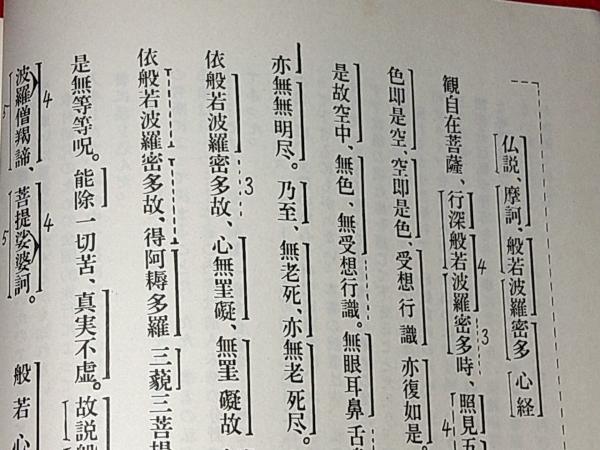 仏説、摩訶、般若波羅密多 心経
観自在菩薩、行深般若波羅密多時、照見五
色即是空、空即是色、受想 行 識 亦復如是。
是故空中、無色、無受想行識。無眼耳鼻 舌
亦無無明尽。乃至、無老死、亦無老 死尽。
依般若波羅密多故、心無罣礙、無罣 礙故
依般若波羅密多故、得阿耨多羅 三藐三菩提
是無等等呪。能除一切苦、真実不虚。故説般
波羅僧羯諦、菩提娑婆訶。 般 若 心
4
3
4
3
4
4
5
5